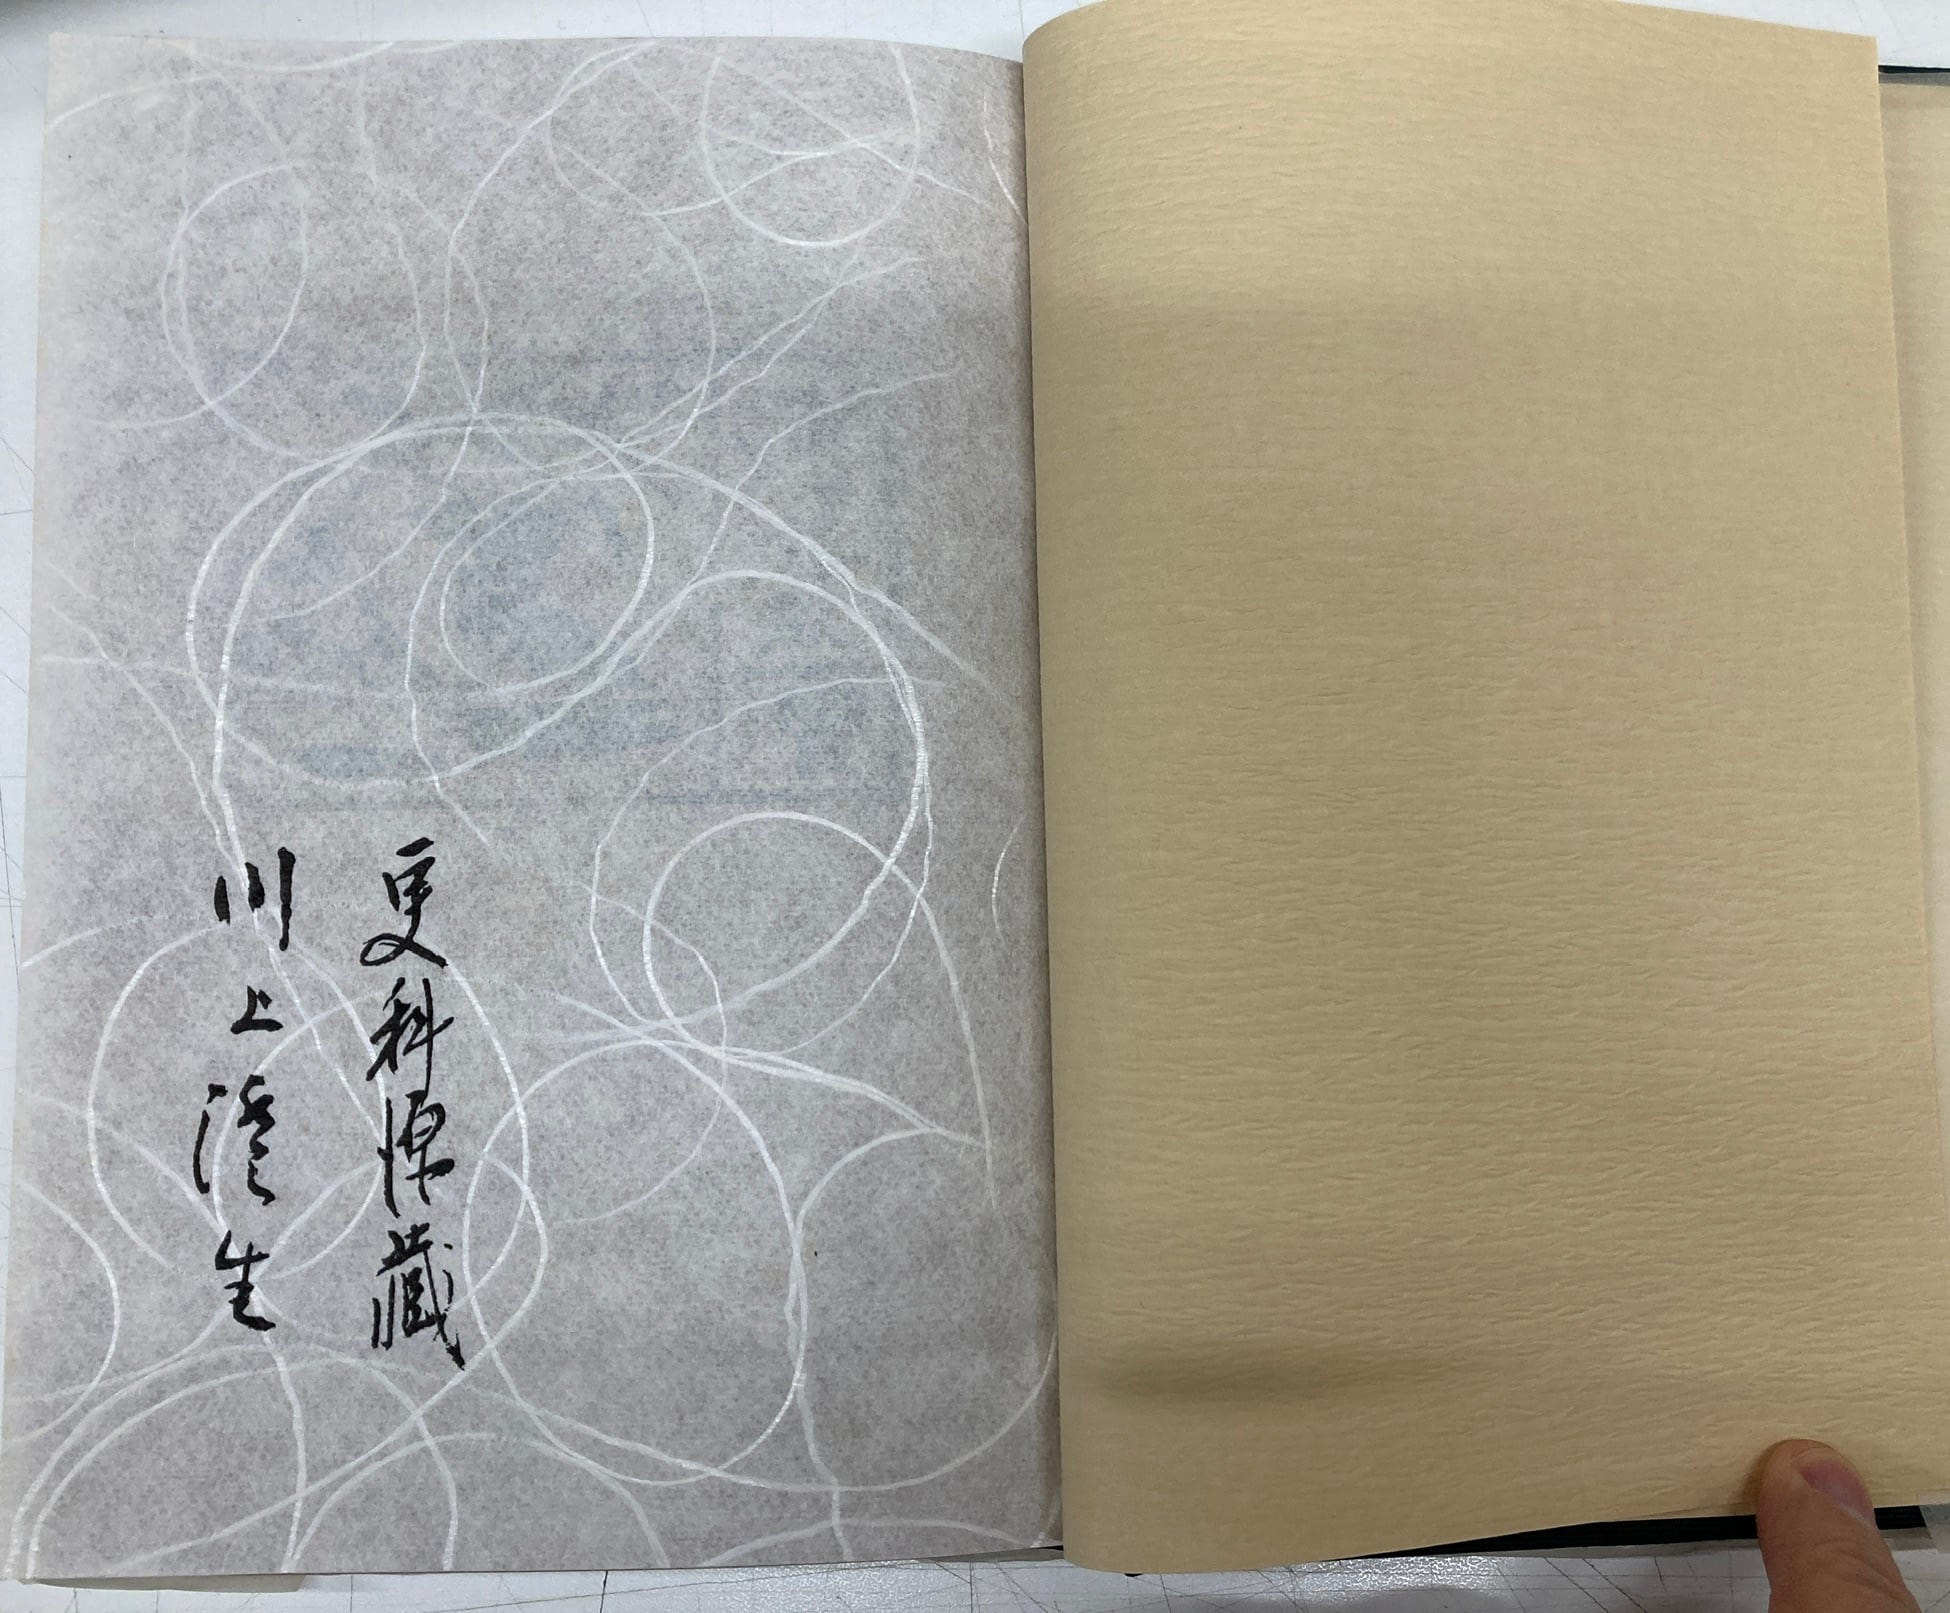 更科源蔵
川上澄生